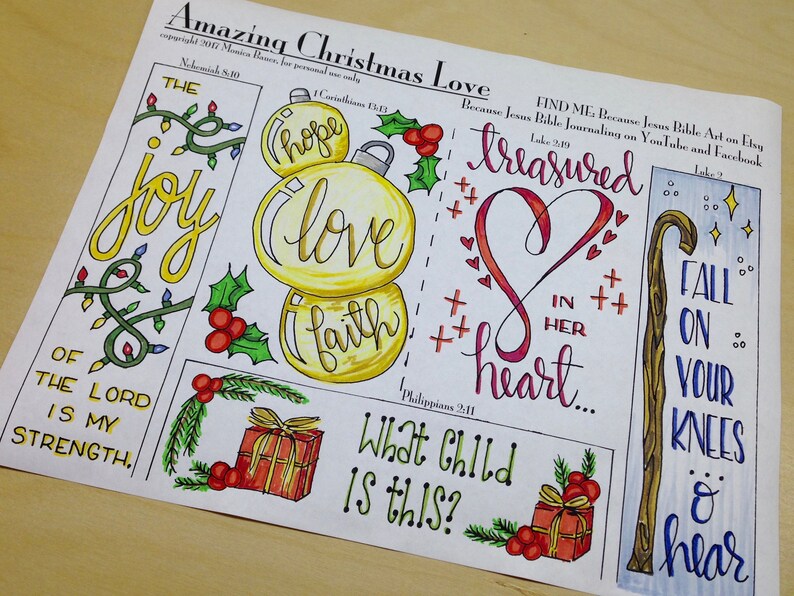 Amazing Christmas Love
copyright 2017 Monica Bauer, for personal use only
FIND ME: Because Jesus Bible Art on Etsy
Because Jesus Bible Journaling on YouTube and Facebook
Nehemiah 8:10
THE
joy
OF
THE LORD
IS MY
STRENGTH.
1 Corinthians 13:13
hope
love
faith
Luke 2:19
treasured
IN
HER
heart...
Luke 2
FALL
ON
YOUR
KNEES
...O
hear
Philippians 2:11
What Child
is this?